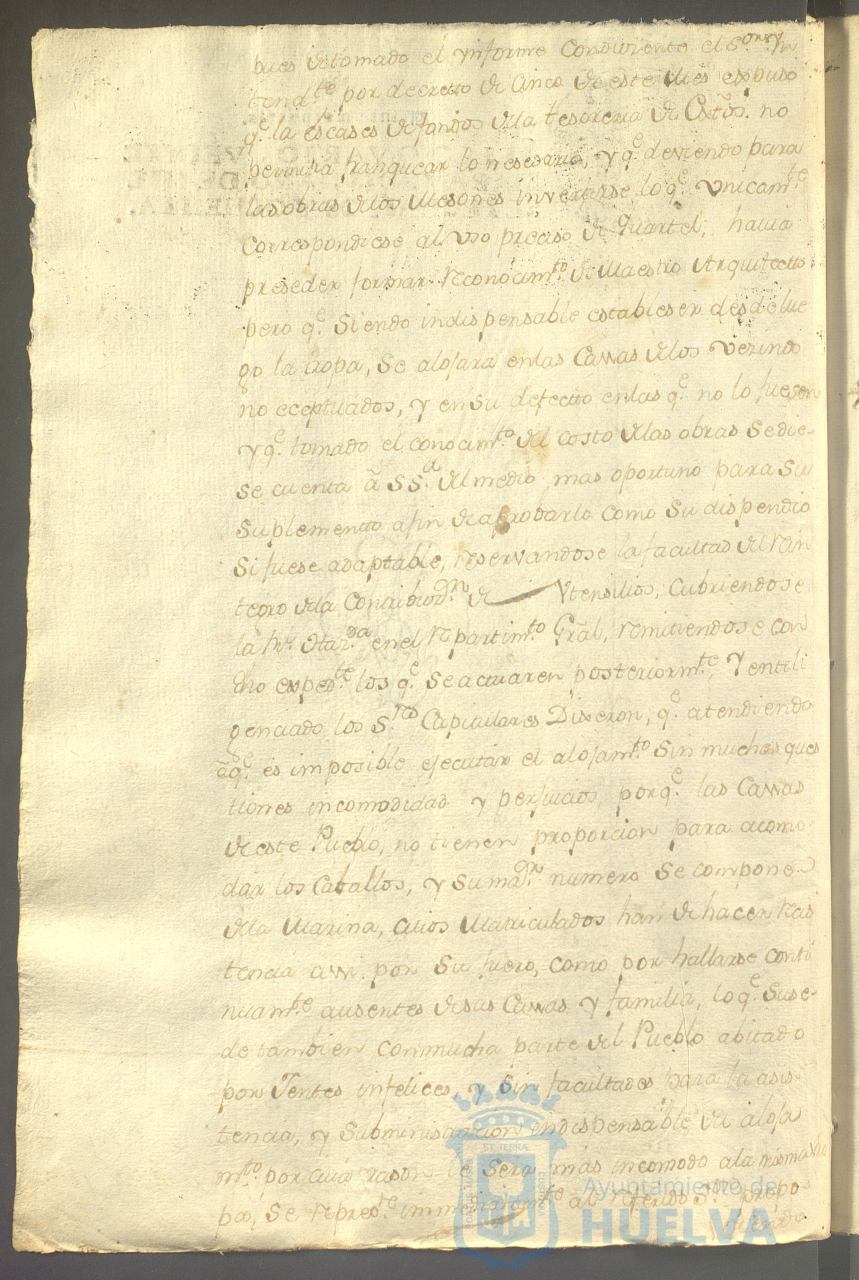 pues de tomado el ynforme Conduzente el S.or Yn
tend.te por decreto de Cinco de este Mes expuso
q.e la escases de fondos de la tesoreria de no
permitia franquear lo nesesario, y q.e deviendo para
las obras de los Mesones invertirse lo q.e Unicam.te
Correspondiese al Uso preciso de Quartel, havia
preseder formar Reconocim.to de Maestro Arquitecto
pero q.e Siendo indispensable estableser desde lue
go la tropa, Se alojara en las Cassas de los Vezinos
no eceptuados, y en su defecto en las q.e no lo fuesen
y q.e tomado el conocim.to del costo de las obras Se die-
se cuenta â S S.a del medio mas oportuno para Su
Suplemento a fin de aprobarlo como Su dispendio
Si fuese adaptable, Reservandose la facultad del Rein
tegro de la de Utensilios, Cubriendose
la R.l en el Repartim.to Gral, Remitiendose con
dho exped.te los q.e Se actuaren posteriorm.te, Y enteli
genciado los S.res Capitulares Dixeron, q.e atendiendo
âq.e es imposible ejecutar el alojam.to Sin muchas ques
tiones incomodidad y perjuicios, porq.e las Cassas
de este Pueblo, no tienen proporcion para acomo
dar los Caballos, y Su ma.or numero Se compone
de la Marina, cuios Matriculados han de hacer Resis
tencia assi por Su fuero, como por hallarse conti
nuam.te ausentes de sus Cassas y familia, lo q.e Suse-
de tambien con mucha parte del Pueblo abitado
por Jentes infelices, y Sin facultades para la asis
tencia, y Subministracion indispensable de aloja
m.to por cuia rason le Sera mas incomodo a la misma
Se Represente immediatam.te al referido S.or propo
niendo
ET TERRÆ
Ayuntamiento de
HUELVA